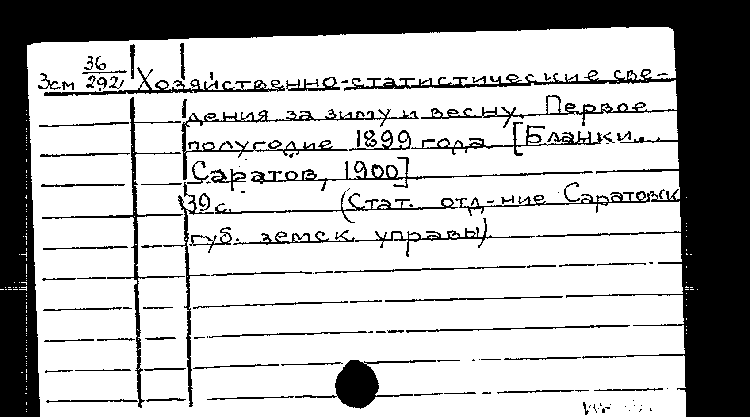 36
Зсм 292 Хозяйственно-статистические све-
дения за зиму и весну. Первое
полугодие 1899 года. [Бланки.
Саратов, 1900]
39 с. (Стат. отд-ние Саратовск
губ. земск. управы)